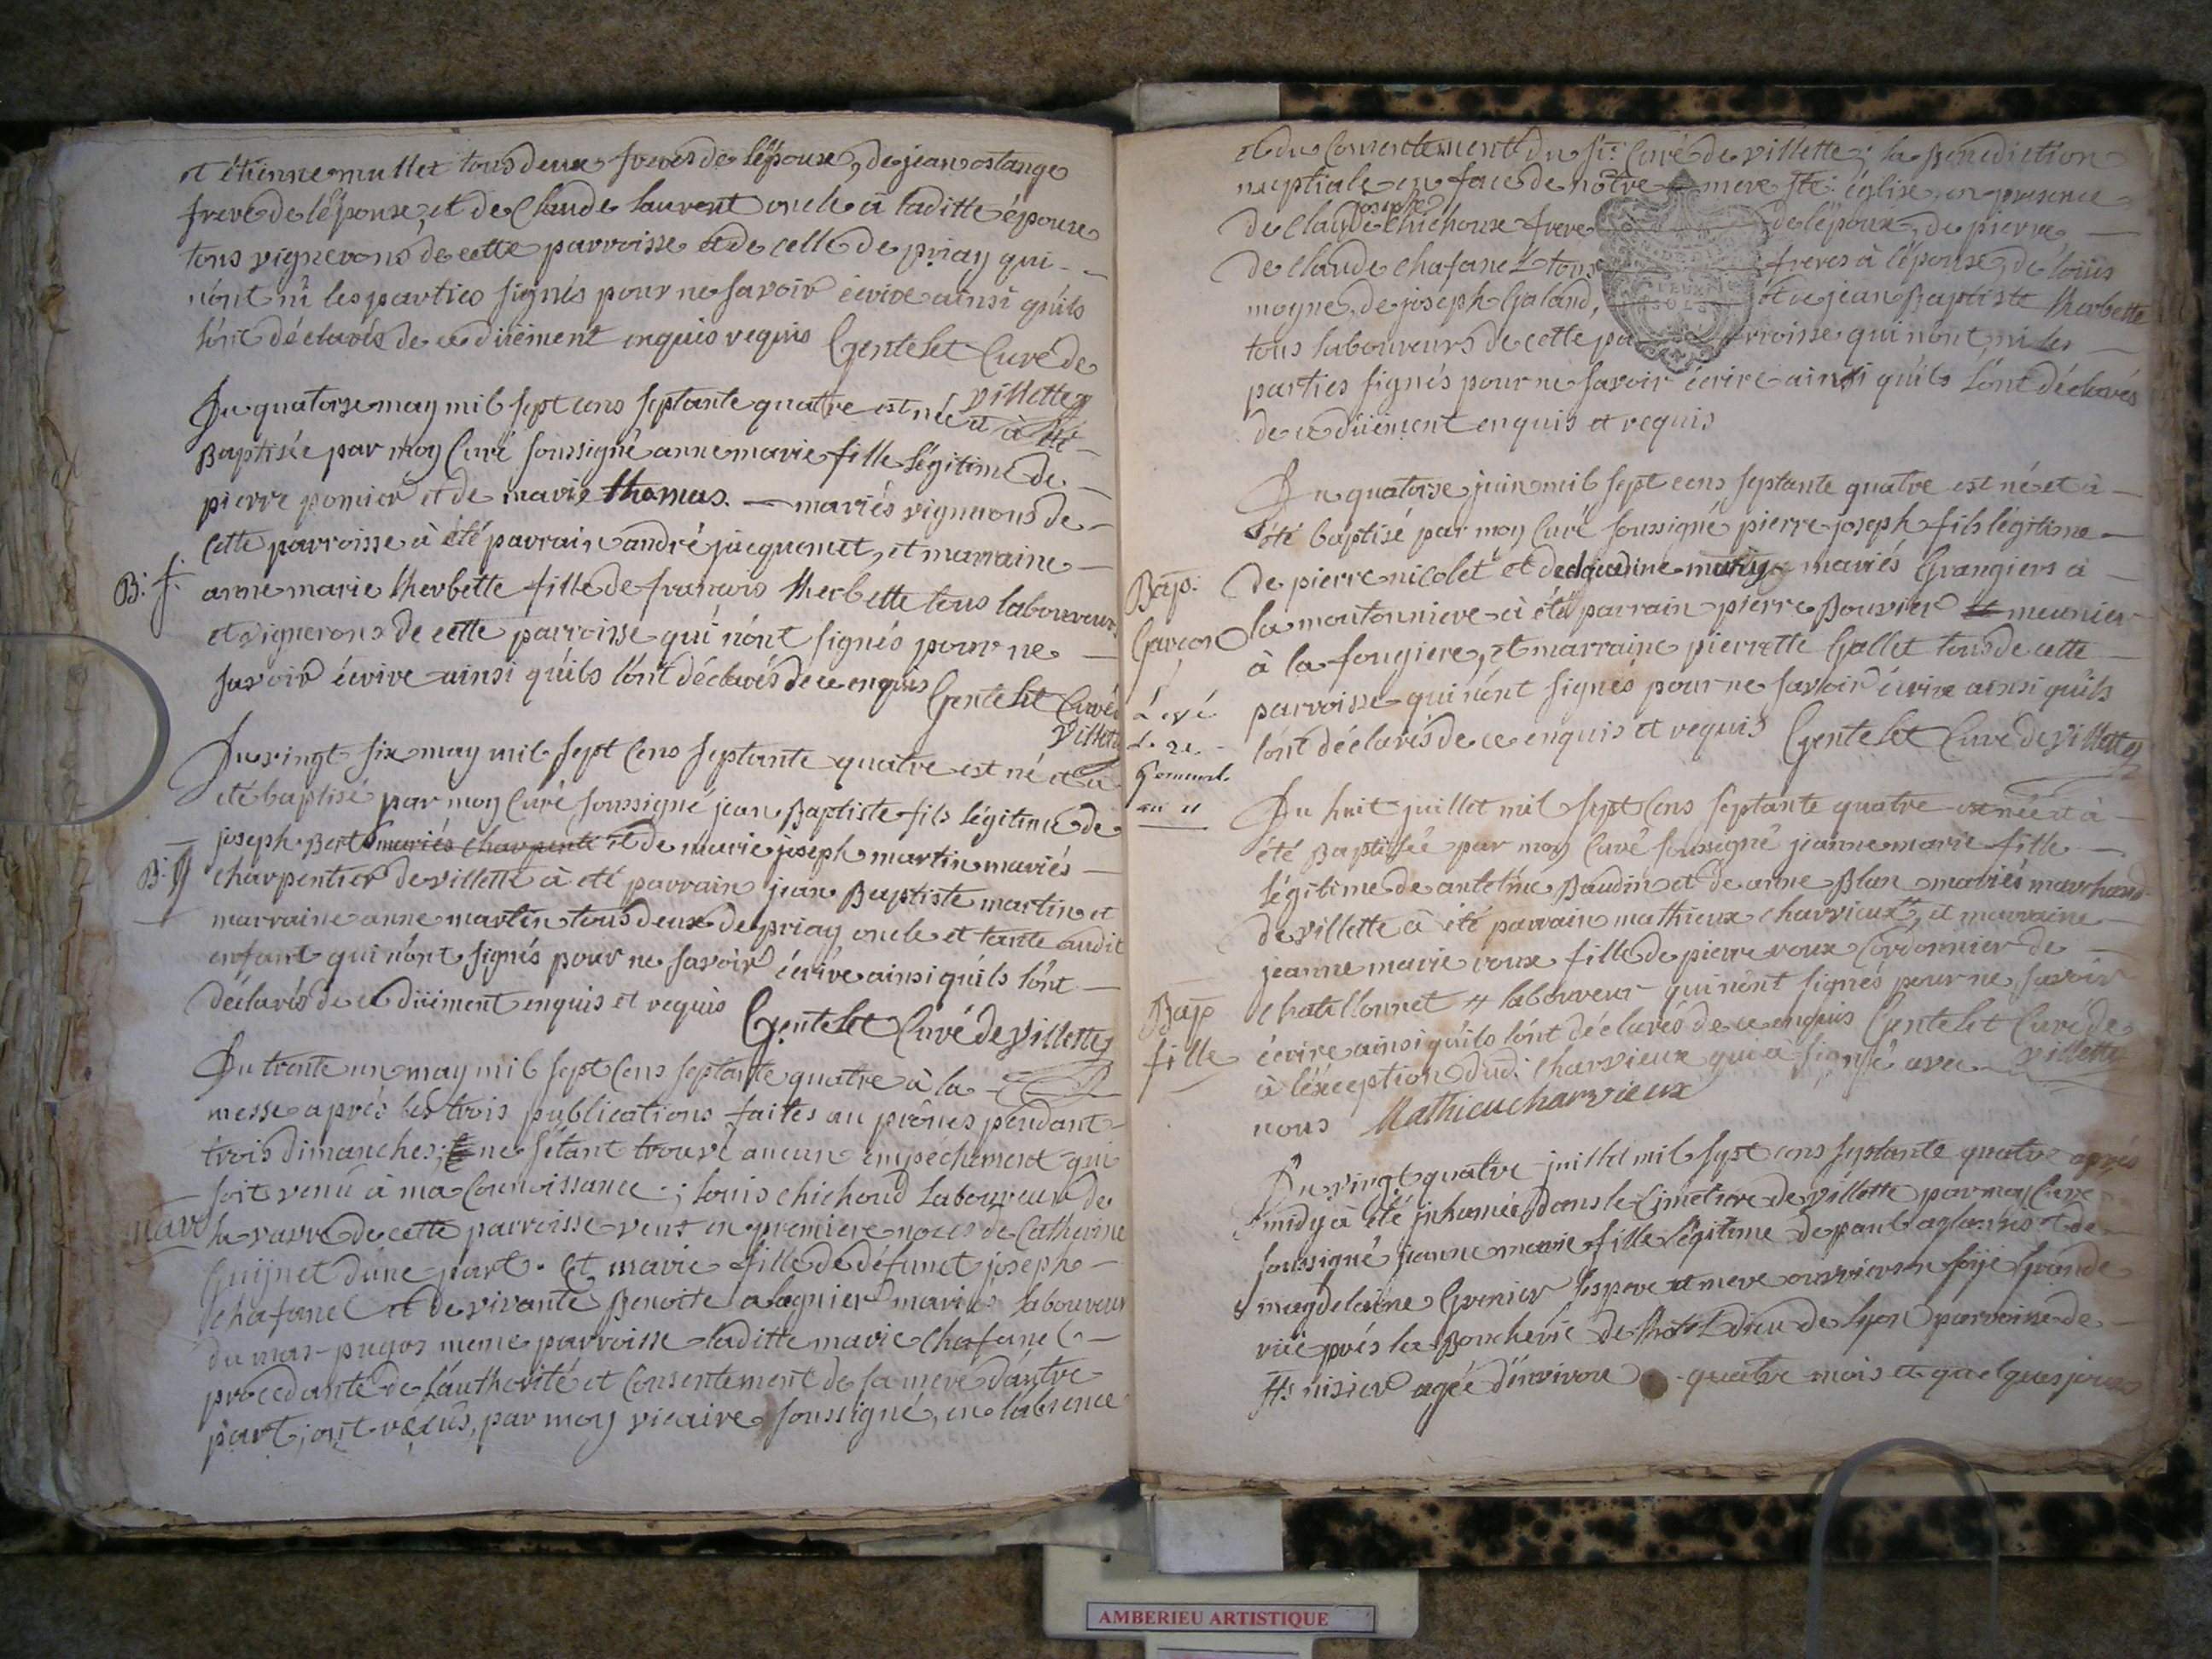 et étienne mullet tous deux freres de l'époux, de jean ostange
frere de l'épouse, et de Claude laurent oncle à laditte épouse
tous vignerons de cette parroisse et de celle de priay qui
n'ont ni les parties signés pour ne savoir écrire ainsi qu'ils
l'ont déclarés de ce düement enquis requis Gentelet Curé de
villette
Du quatorze may mil sept cens septante quatre est née et à été
Baptisée par moy Curé soussigné anne marie fille légitime de
pierre pomier et de marie thomas mariés vignerons de
cette parroisse à été parrain andré jacquemet, et marraine
B: f:
anne marie therbette fille de françois therbette tous laboureurs
et vignerons de cette parroisse qui n'ont signés pour ne
savoir écrire ainsi qu'ils l'ont déclarés de ce enquis Gentelet Curé
villette
Du vingt six may mil sept Cens septante quatre est né et à
été baptisé par moy Curé soussigné jean Baptiste fils légitime de
joseph Bert mariés charpente et de marie joseph martin mariés
B: g
charpentier de villette à été parrain jean Baptiste martin et
marraine anne martin tous deux de priay oncle et tante audit
enfant qui n'ont signés pour ne savoir écrire ainsi qu'ils l'ont
déclarés de ce düement enquis et requis Gentelet Curé de Villette
Du trente un may mil sept Cens septante quatre à la
messe après les trois publications faites au prônes pendant
trois dimanches; ne s'étant trouvé aucun empéchement qui
soit venû à ma Connoissance; louis chichoud Laboureur de
mar
la varre de cette parroisse veuf en premiere noces de Catherine
Guijnet d'une part. Et marie fille de défunct joseph
chafanel et de vivante Benoite alagnier mariés laboureur
du mas pugos meme parroisse laditte marie Chafanel
procedante de l'authorité et Consentement de sa mere d'autre
part; ont reçûs, par moy vicaire soussigné, en l'absence
et du Consentement du sr. Curé de villette; la Benediction
nuptiale en face de nôtre mere ste. église, en presence
joseph
de Claude Chichoux frere de l'époux, de pierre
de Claude chafanel tous freres à l'épouse, de loüis
moyne, de joseph Galand, et de jean Baptiste therbette
tous laboureurs de cette parroisse qui n'ont, ni les
parties signés pour ne savoir écrire ainsi qu'ils l'ont déclarés
de ce düement enquis et requis
Du quatorze juin mil sept cens septante quatre est né et à
été baptisé par moy Curé soussigné pierre joseph fils légitime
Bap:
de pierre nicolet et de claudine mariés Grangiers à
Garçon
la moutonniere à été parrain pierre Bouvier meunier
à la fougiere, et marraine pierrette Gallet tous de cette
parroisse qui n'ont signés pour ne savoir écrire ainsi qu'ils
l'ont déclarés de ce enquis et requis Gentelet Curé de Villette
Levé
Le 21
an 11
Du huit juillet mil sept Cens septante quatre est née et à
été Baptisée par moy Curé soussigné jeanne marie fille
légitime de antelme Baudin et de anne Blan mariés marchand
de villette à été parrain mathieux charvieux, et marraine
jeanne marie roux fille de pierre roux Cordonnier de
Bap
fille
Chatillonnet laboureur qui n'ont signés pour ne savoir
écrire ainsi qu'ils l'ont déclarés de ce enquis Gentelet Curé de
villette
à l'éxception dud. charvieux qui à signé avec
nous Mathieu charvieux
Du vingt quatre juillet mil sept cens septante quatre après
midy à été inhumée dans le Cimetiere de villette par moy Curé
soussigné jeanne marie fille légitime de paul et de
magdelaine Grenier ses pere et mere ouvriers en soije Grande
rüe prés la Boucherie de l'hotel dieu de Lyon parroisse de
St. nisier agée d'environ quatre mois et quelques jours
AMBERIEU ARTISTIQUE